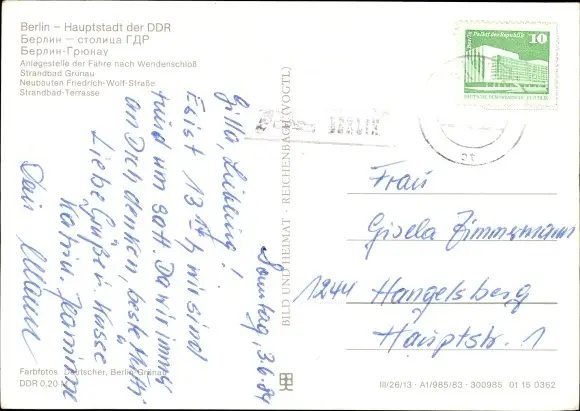 Berlin – Hauptstadt der DDR
Берлин — столица ГДР
Берлин-Грюнау
Anlegestelle der Fähre nach Wendenschloß
Strandbad Grünau
Neubauten Friedrich-Wolf-Straße
Strandbad-Terrasse
Sonntag, 3.6.84
Gilla, Liebling!
Es ist 13 h, wir sind
rund um satt. Da wir immer
an Dich denken, beste Mutti
Liebe Grüße u. Küsse
Katrin Jeannine
Dein Mann
BILD UND HEIMAT · REICHENBACH (VOGTL)
BERLIN
Palast der Republik
10
Frau
Gisela Zimmermann
1244 Hangelsberg
Hauptstr. 1
Farbfotos: Deutscher, Berlin-Grünau
DDR 0,20 M
III/26/13 · A1/985/83 · 300985 01 15 0362